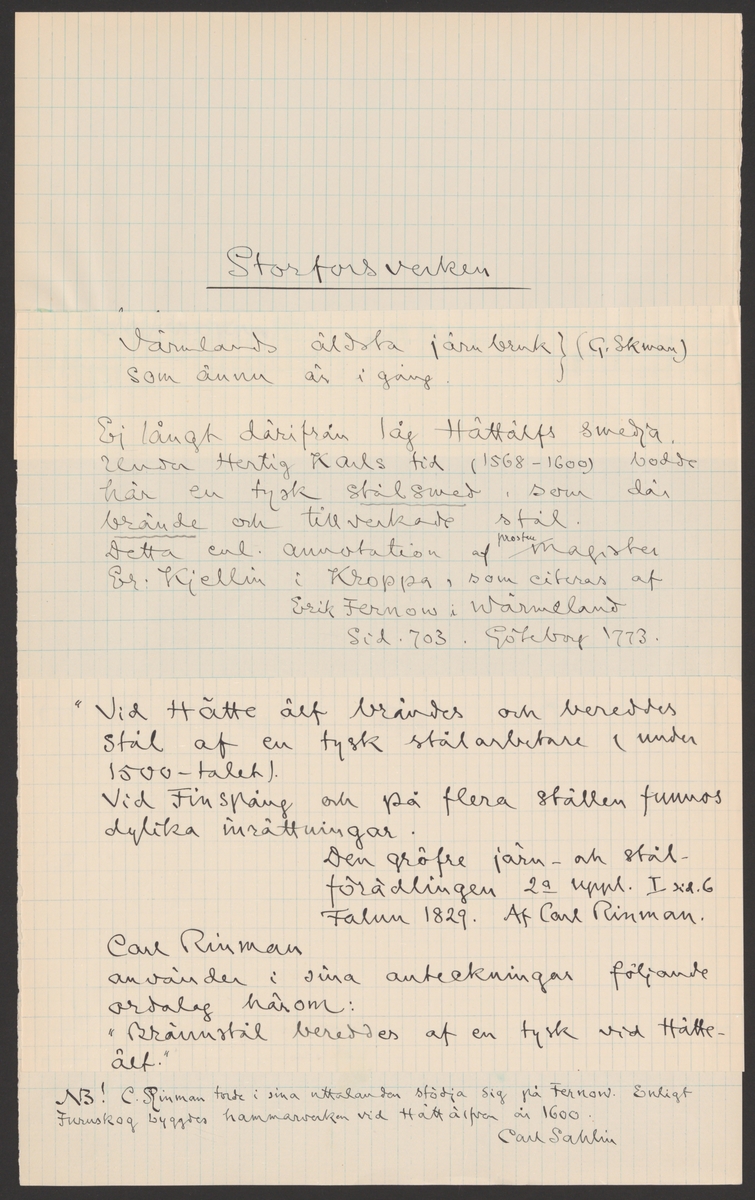 Storforsverken
Värmlands äldsta järnbruk } (G. Ekman)
som ännu är i gång.
Ej långt därifrån låg Hättälfs smedja.
Under Hertig Karls tid (1568-1600) bodde
här en tysk stålsmed, som där
brände och tillverkade stål.
Detta enl. annotation af prosten Magister
Er. Kjellin i Kroppa, som citeras af
Erik Fernow i Wärmeland
Sid. 703. Göteborg 1773.
"Vid Hätte älf brändes och bereddes
Stål af en tysk stålarbetare (under
1500-talet).
Vid Finspång och på flera ställen funnos
dylika inrättningar.
Den gröfre järn- och stål-
förädlingen 2a uppl. I sid. 6
Falun 1829. Af Carl Rinman.
Carl Rinman
använder i sina anteckningar följande
ordalag härom:
"Brännstål bereddes af en tysk vid Hätte-
älf."
NB! C. Rinman torde i sina uttalanden stödja sig på Fernow. Enligt
Furuskog byggdes hammarverken vid Hättälfven år 1600.
Carl Sahlin